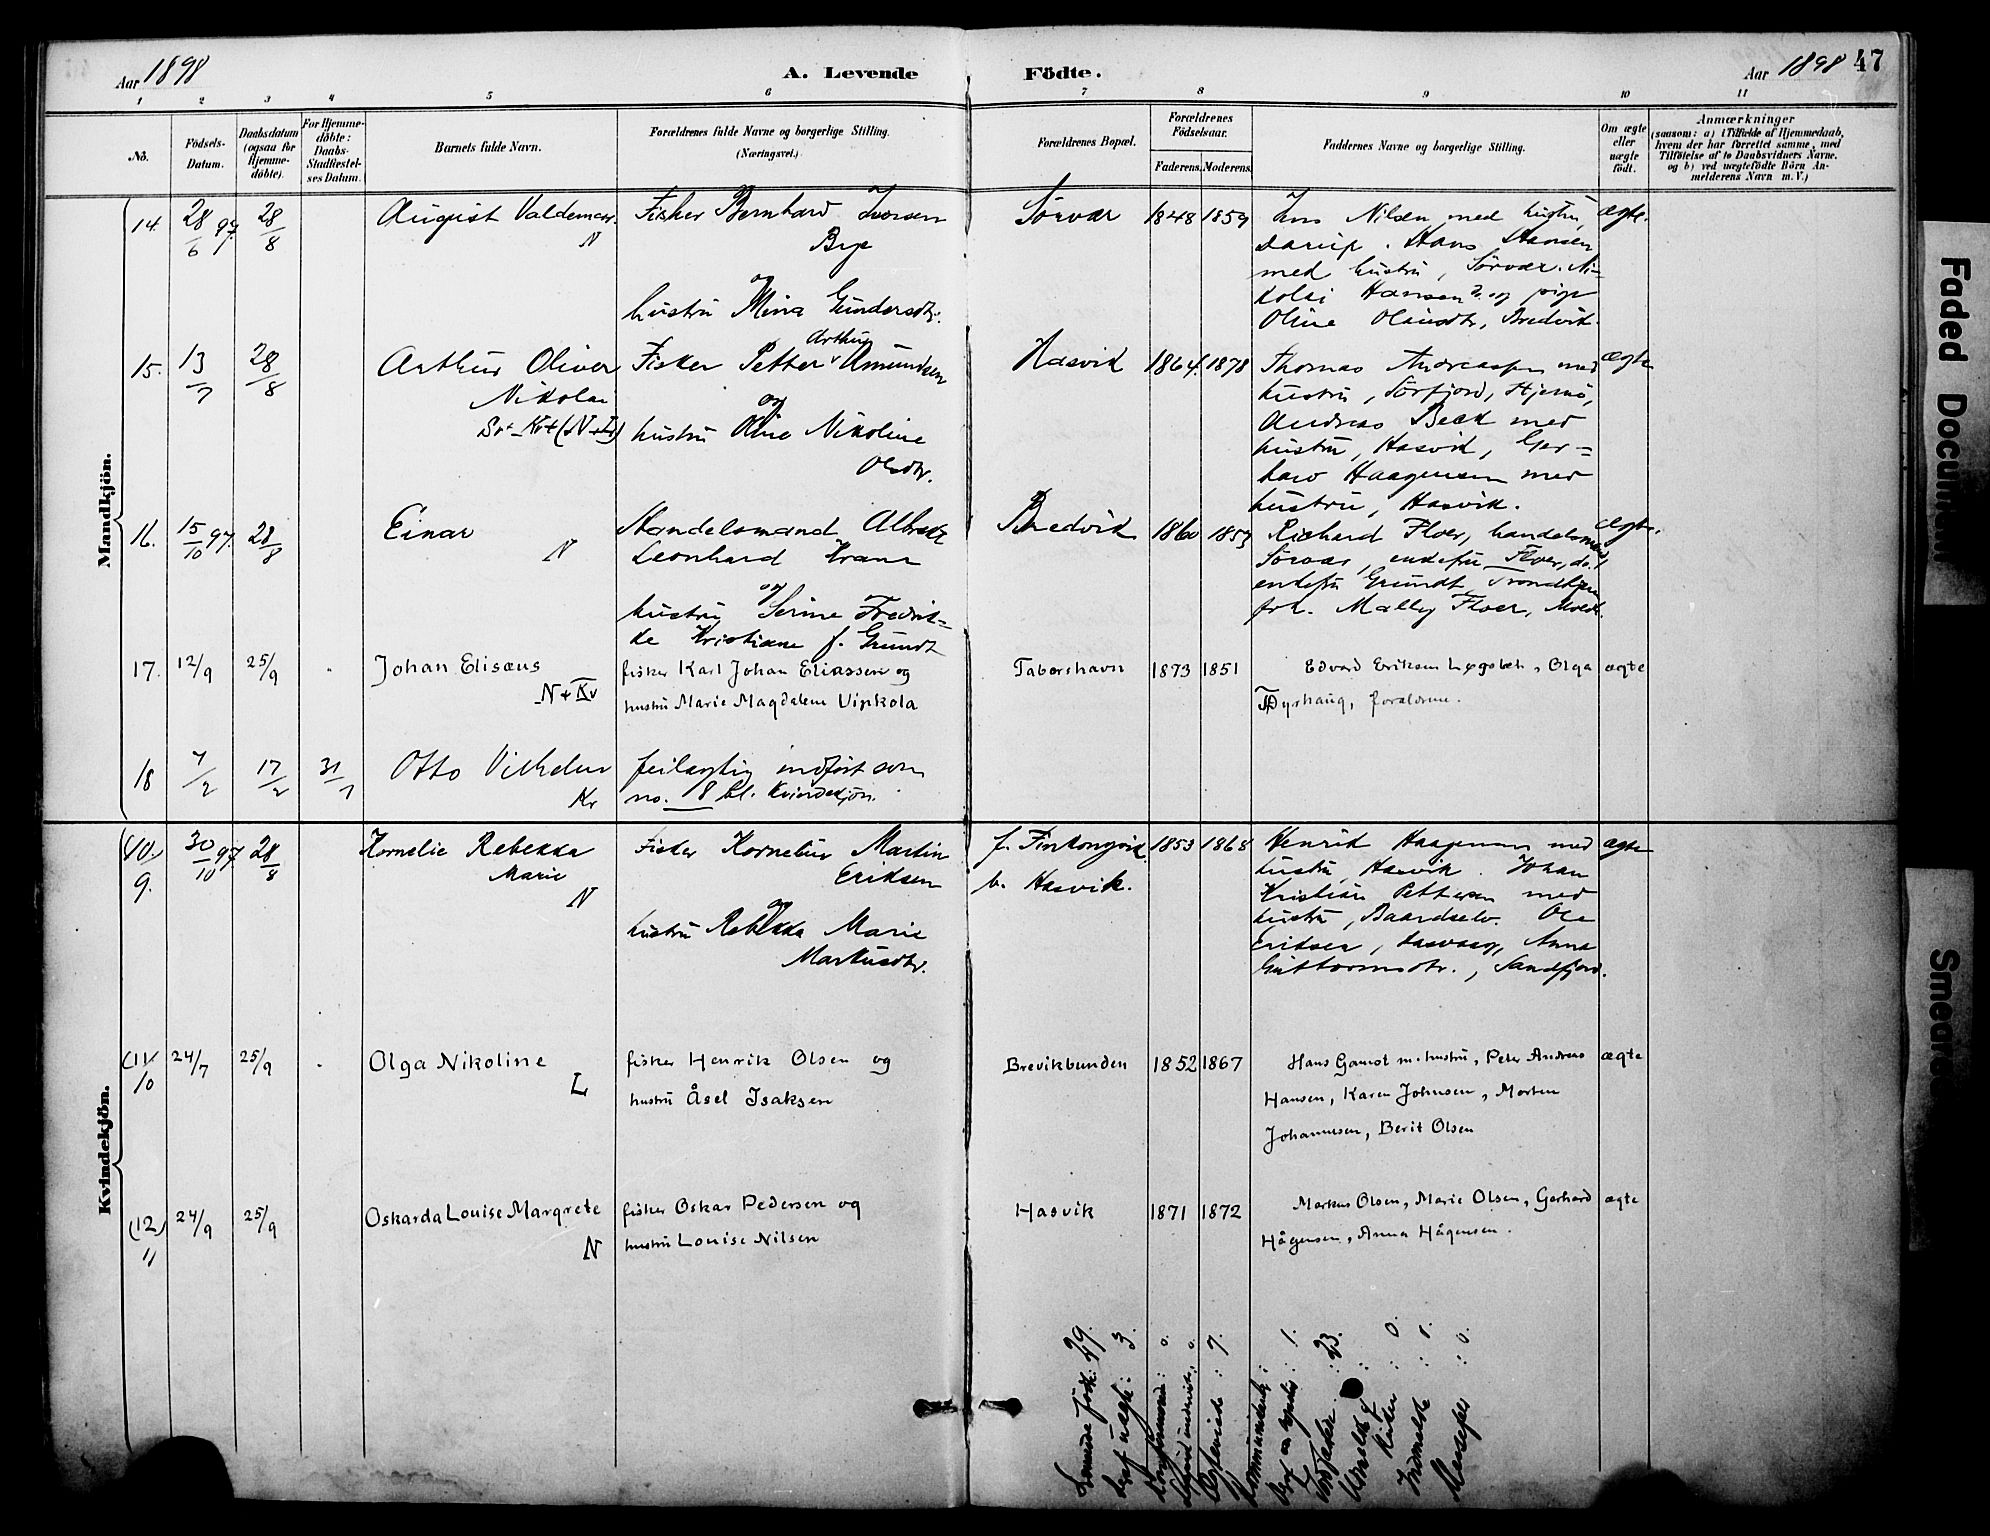 Aar 1898
A. Levende Födte.
Aar 1898 47
1 2 3 4 5 6 7 8 9 10 11
No.
Födsels-Datum.
Daabsdatum (ogsaa for Hjemme-döbte).
For Hjemme-döbte: Daabs-Stadfæstel-ses Datum.
Barnets fulde Navn.
Forældrenes fulde Navne og borgerlige Stilling.
(Næringsvei.)
Forældrenes Bopæl.
Forældrenes Födselsaar.
Faderens. Moderens.
Faddernes Navne og borgerlige Stilling.
Om ægte eller uægte födt.
Anmærkninger
(saasom: a) i Tilfælde af Hjemmedaab,
hvem der har forrettet samme, med
Tilföielse af to Daabsvidners Navne,
og b) ved uægtefödte Börn An-
melderens Navn m. V.)
Mandkjön.
14. 28/6 97. 28/8 August Valdemar. Fisker Bernhard Iversen Sörvær 1848 1859 Jens Nilsen med hustru, ægte.
N Bye Darup. Hans Hansen
og med hustru, Sörvær. Ni-
hustru Mina Gundersdtr. kolai Hansen og pige
Oline Olausdtr, Bredvik.
15. 13/7 28/8 Arthur Oliver Fisker Petter Arthur Amundsen Hasvik 1864. 1878 Thomas Andreassen med ægte
Nikolai og hustru, Sörfjord, Hjelmsö,
hustru Oline Nikoline Andreas Beck med
Olsdtr. hustru, Hasvik, Ger-
hard Haagensen med
hustru, Hasvik.
16. 15/10 97. 28/8 Einar Handelsmand Albrekt Bredvik 1860 1853 Richard Floer, handelsmand, ægte.
N Leonhard Krane Sörvær, enkefru Floer, do.,
og enkefru Grundt, Trondhjem
hustru Serine Fredrik- frk. Mally Floer,
ke Kristiane f. Grundt
17. 12/9 25/9 - Johan Elisæus fisker Karl Johan Eliassen og Tabershavn 1873 1851 Edvard Eriksen Løgsletb, Olga ægte
N + Kv hustru Marie Magdalene Vipkola Dyrhaug, forældrene.
18 7/2 17/2 31/7 Otto Vilhelm feilagtig indført som
Kv no. 8 bl. Kvindekjön.
Kvindekjön.
(10.) 9. 30/10 97 28/8 Kornelie Rebekka Fisker Kornelius Martin f. Finkongvik. 1853 1868 Henrik Haagensen med ægte
Marie Eriksen b. Hasvik. hustru, Hasvik. Johan
N og Kristian Pettersen med
hustru Rebekka Marie hustru, Baardselv. Ole
Markusdtr. Eriksen, Hasvaag, Anna
Guttormsdtr., Sandfjord.
(11) 10 24/7 25/9 - Olga Nikoline fisker Henrik Olsen og Brevikbunden 1852 1867 Hans Gamst m. hustru, Peter Andreas ægte
L hustru Åsel Isaksen Hansen, Karen Johnsen, Morten
Johannesen, Berit Olsen
(12) 11 24/9 25/9 Oskarda Louise Margrete fisker Oskar Pedersen og Hasvik 1871 1872 Markus Olsen, Marie Olsen, Gerhard ægte
N hustru Louise Nilsen Hågensen, Anna Hågensen.
Levende født: 29.
heraf uægte: 3.
: 0.
: 0.
: 7.
: 1.
: 23.
: 0.
Indmeldte : 1.
: 0.
Faded Document
Smeared